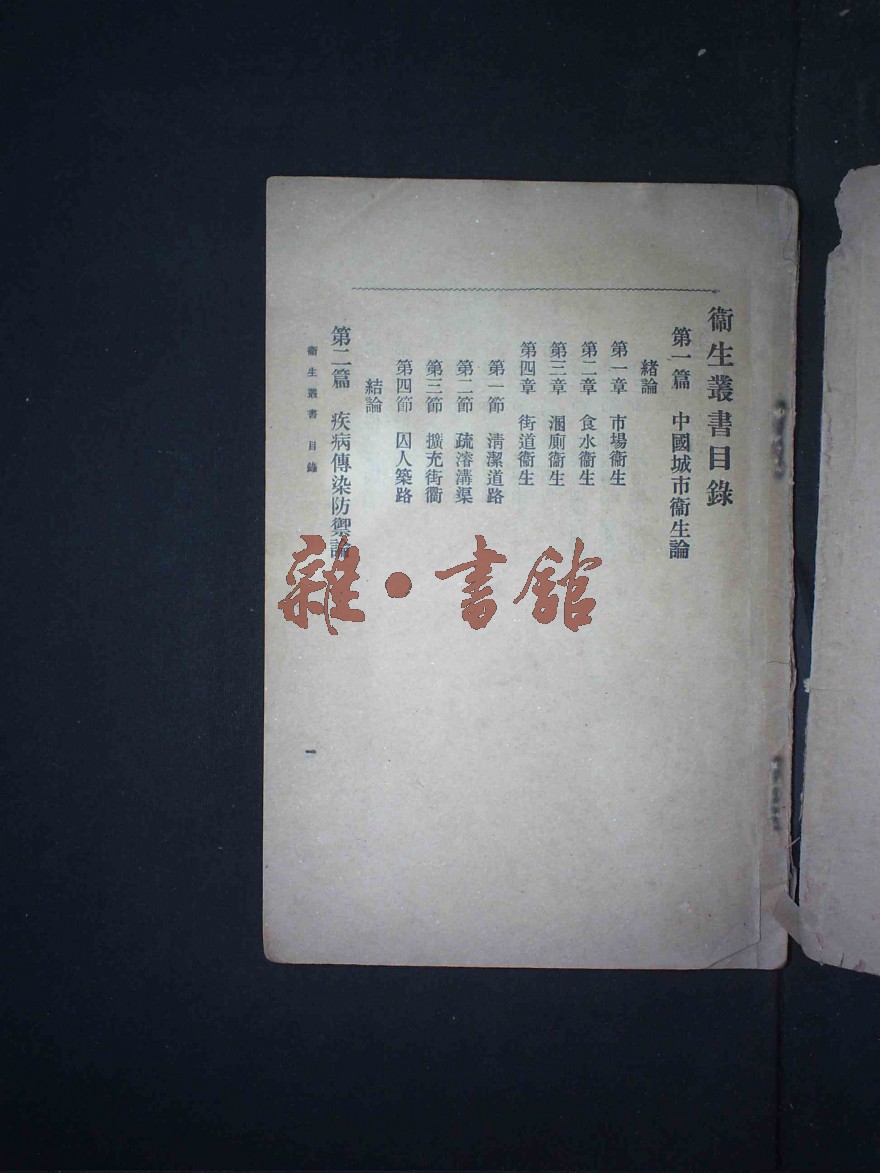 衞生叢書目錄
第一篇 中國城市衞生論
緒論
第一章 市場衞生
第二章 食水衞生
第三章 溷廁衞生
第四章 街道衞生
第一節 清潔道路
第二節 疏濬溝渠
第三節 擴充街衢
第四節 囚人築路
結論
第二篇 疾病傳染防禦論
衞生叢書 目錄
一
雜·書館